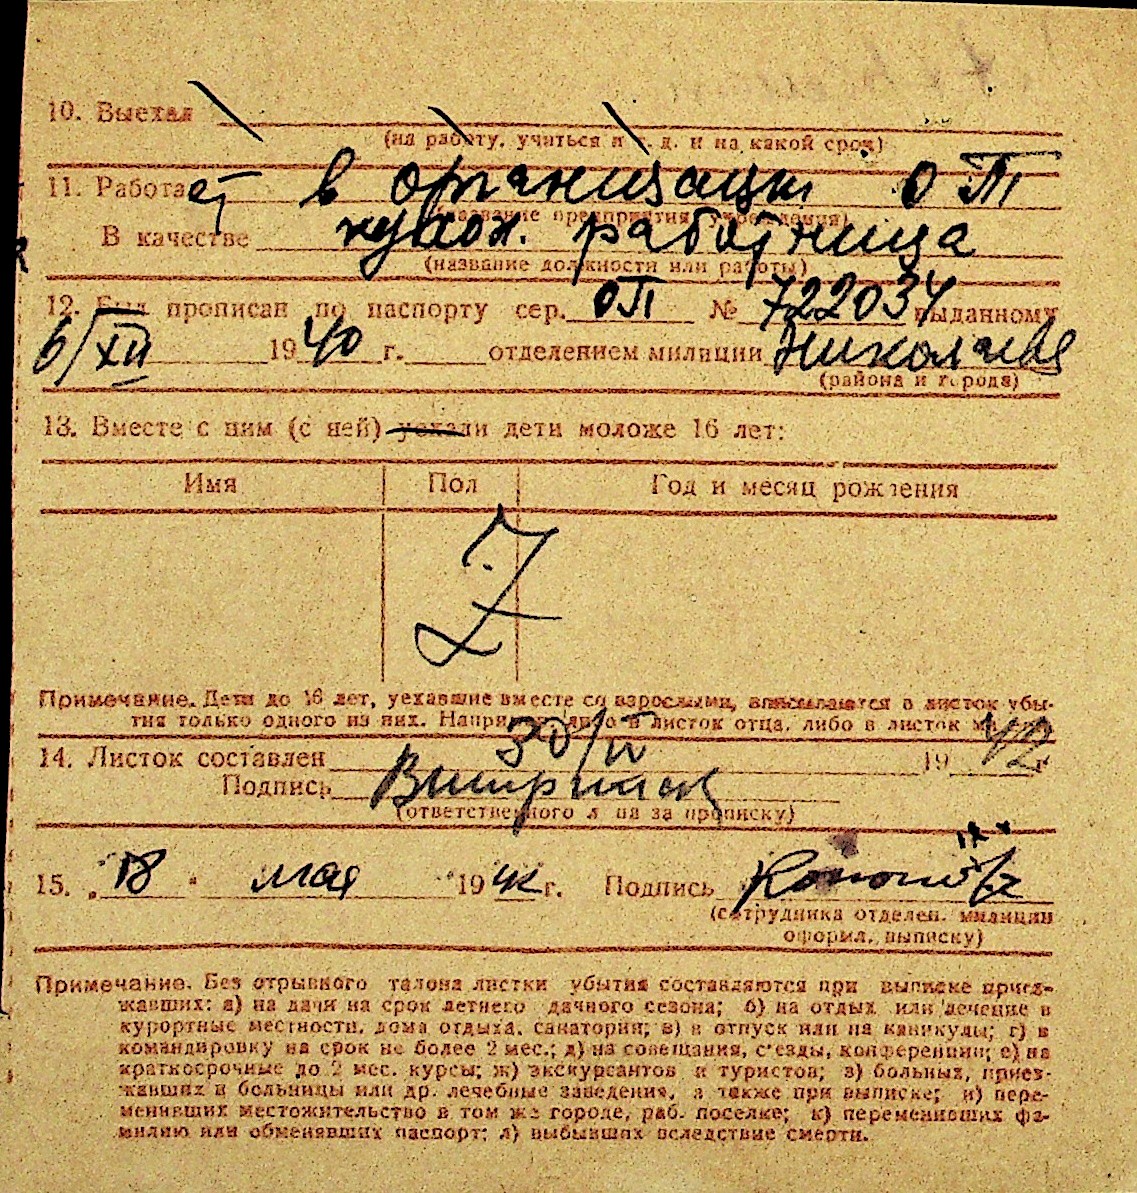 10. Выехал
(на работу, учиться и т. д. и на какой срок)
11. Работает в организации ОТ
(название предприятия, учреждения)
В качестве кухон. работница
(название должности или работы)
12. Был прописан по паспорту сер. ОП № 722034 выданному
6/XII 1940 г. отделением милиции Николаев
(района и города)
13. Вместе с ним (с ней) уехали дети моложе 16 лет:
Имя Пол Год и месяц рождения
Z
Примечание. Дети до 16 лет, уехавшие вместе со взрослыми, вписываются в листок убы-
тия только одного из них. Например, либо в листок отца, либо в листок
14. Листок составлен 30/IV 1942 г.
Подпись
(ответственного лица за прописку)
15. „18" мая 1942 г. Подпись
(сотрудника отделен. милиции
оформл. выписку)
Примечание. Без отрывного талона листки убытия составляются при выписке приез-
жавших: а) на дачи на срок летнего дачного сезона; б) на отдых или лечение в
курортные местности, дома отдыха, санатории; в) в отпуск или на каникулы; г) в
командировку на срок не более 2 мес.; д) на совещания, с'езды, конференции; е) на
краткосрочные до 2 мес. курсы; ж) экскурсантов и туристов; з) больных, приез-
жавших в больницы или др. лечебные заведения, а также при выписке; и) пере-
менивших местожительство в том же городе, раб. поселке; к) переменивших фа-
милию или обменявших паспорт; л) выбывших вследствие смерти.